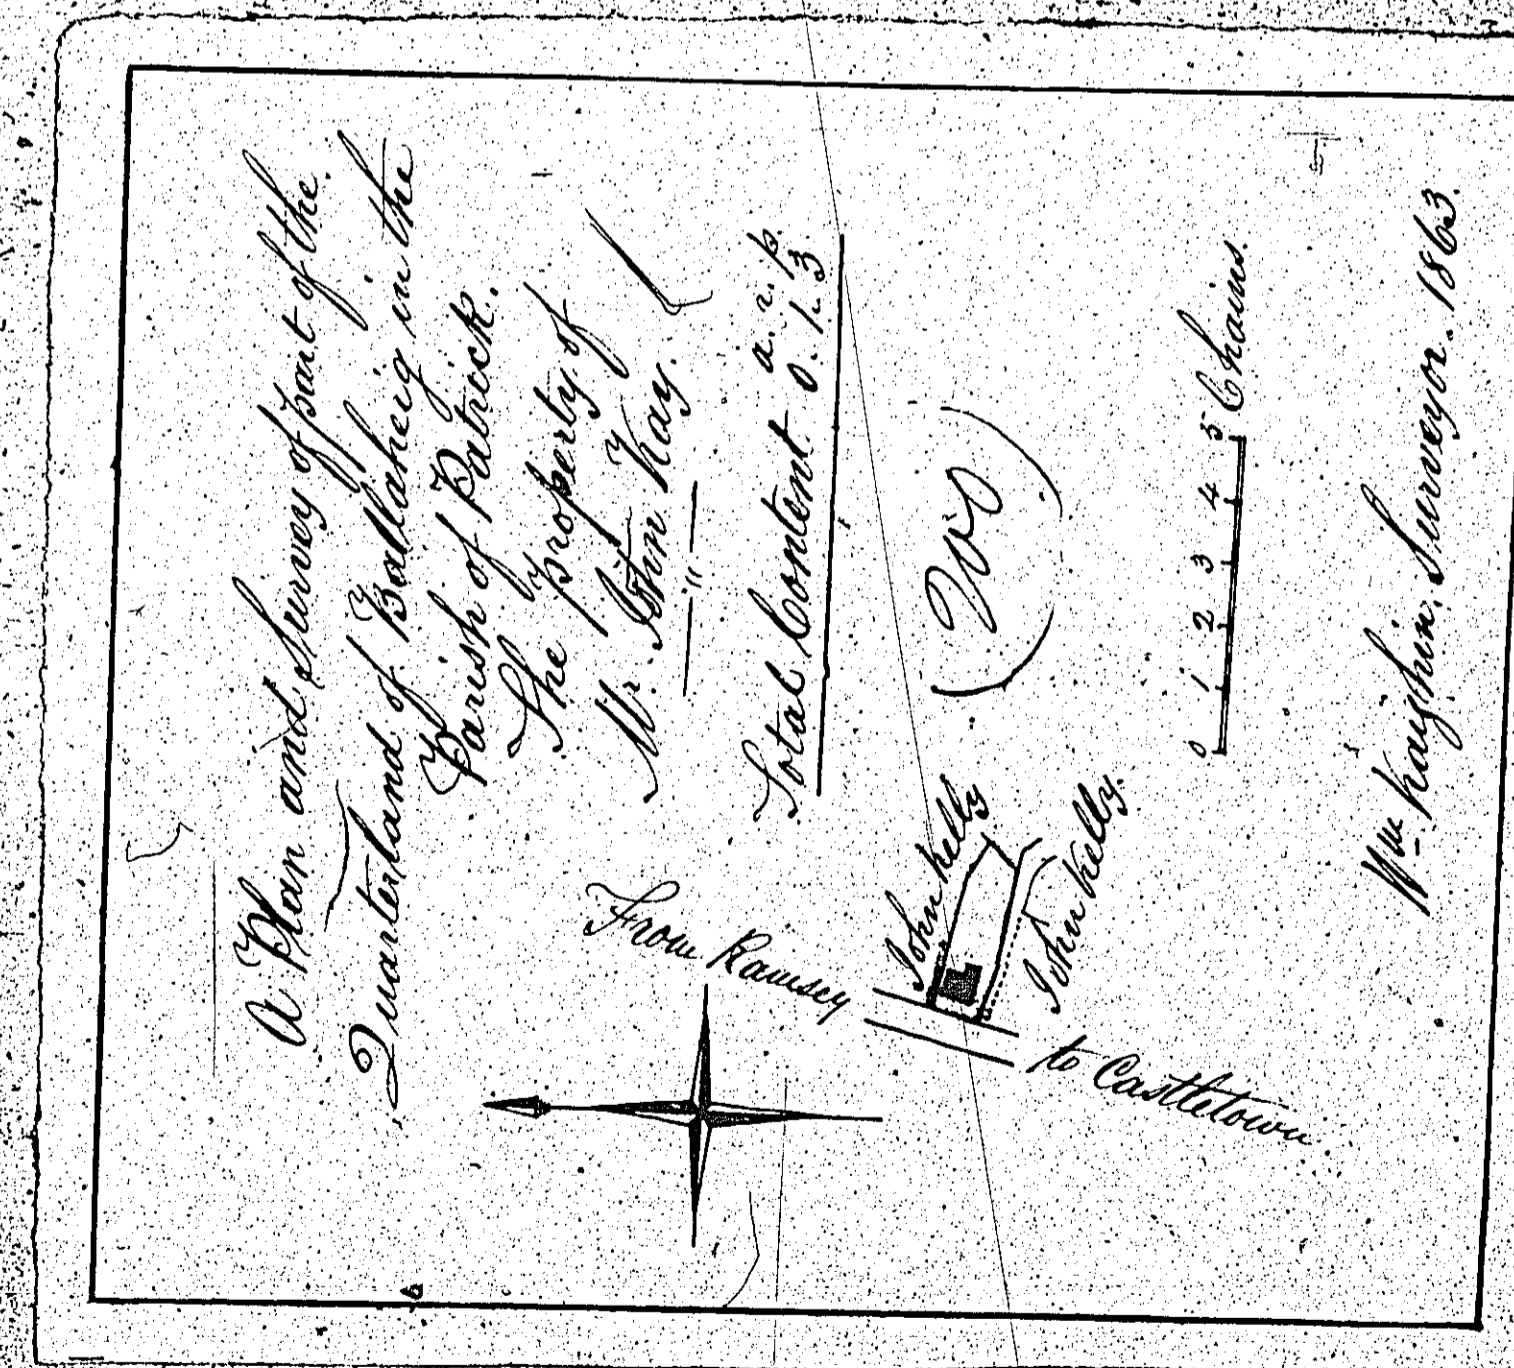 A Plan and Survey of part of the
Quarterland of Ballaheig in the
Parish of Patrick.
The property of
Mr. John Kay.
a. r. p.
Total Content 0. 1. 3
From Ramsey
to Castletown
John Kelly
John Kelly.
0 1 2 3 4 5 Chains.
Wm. Kaighin. Surveyor. 1863.